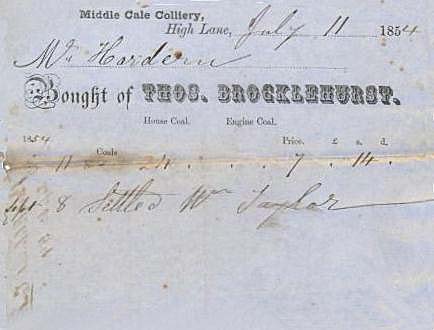 Middle Cale Colliery,
High Lane, July 11 1854
Mr Hardern
Bought of THOS. BROCKLEHURST.
House Coal. Engine Coal.
1854 Coals Price. £ s. d.
11 24 . . . 7 . 14 .
Sept 8 Settled Wm Taylor